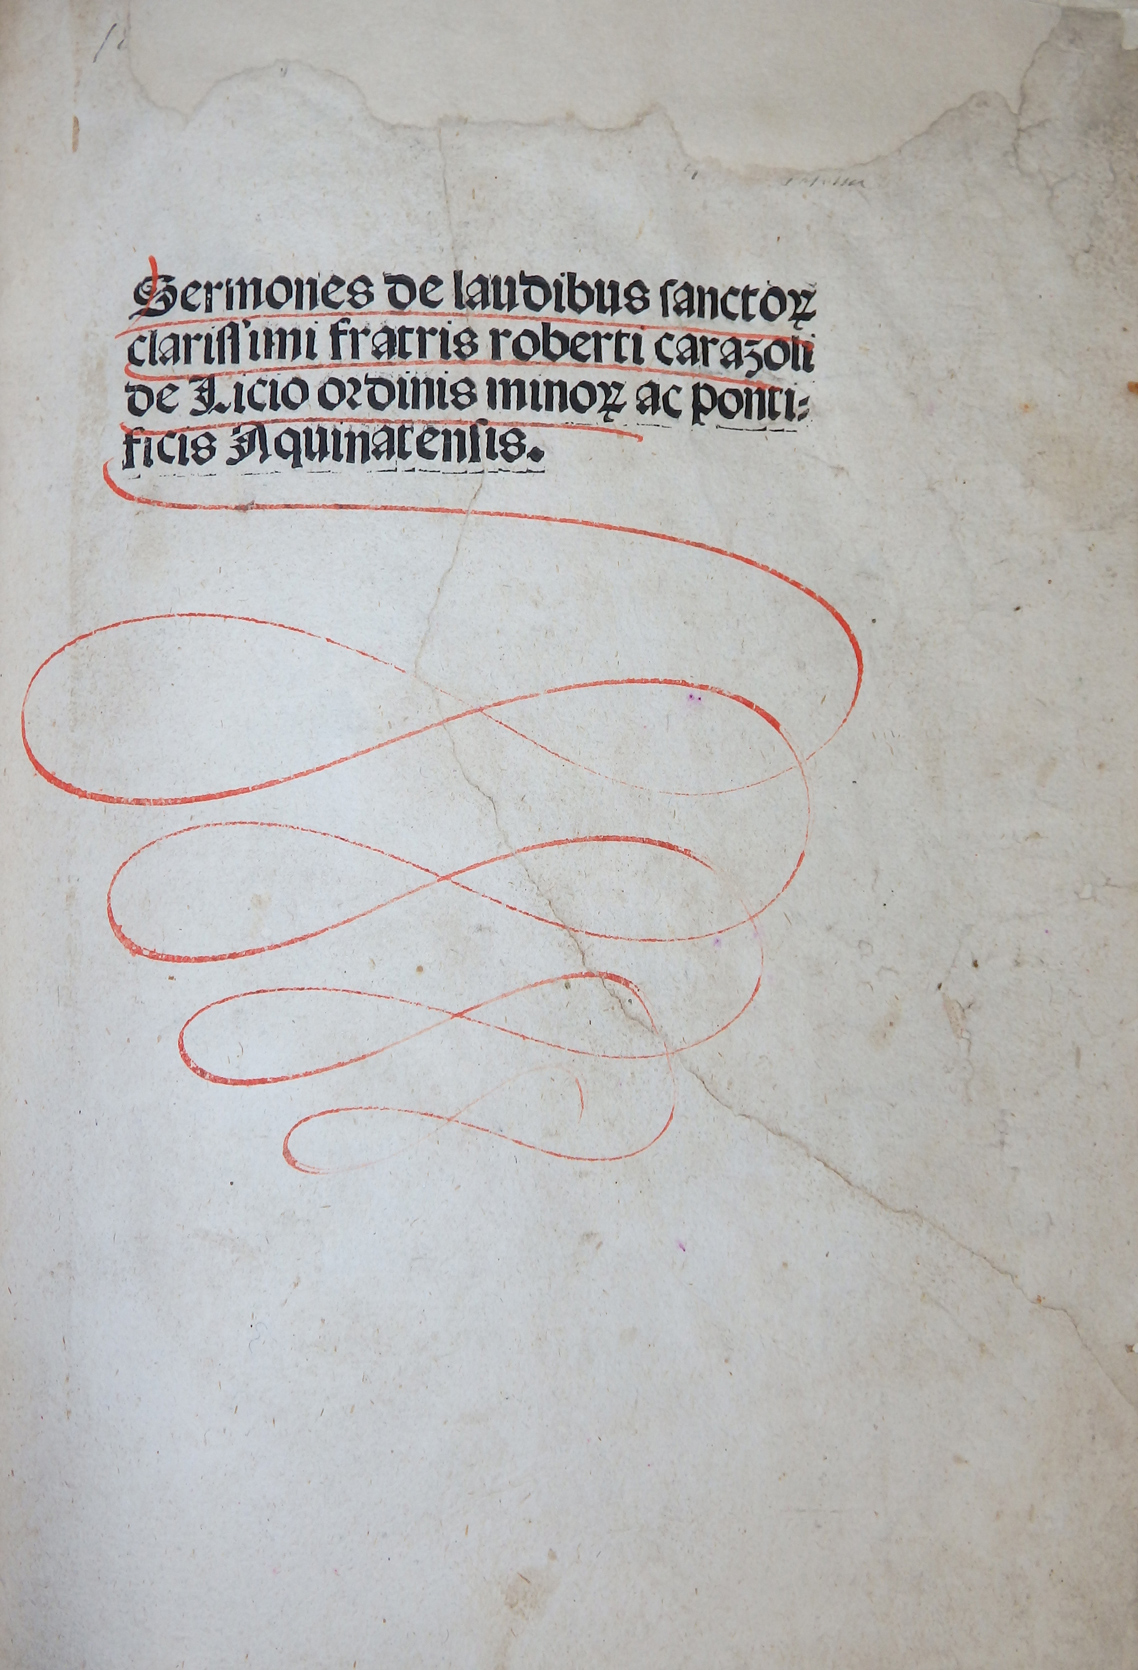 Sermones de laudibus ſanctoꝝ
clariſſimi fratris roberti caraʒoli
de Licio ordinis minoꝝ ac ponti⸗
ficis Aquinatenſis.